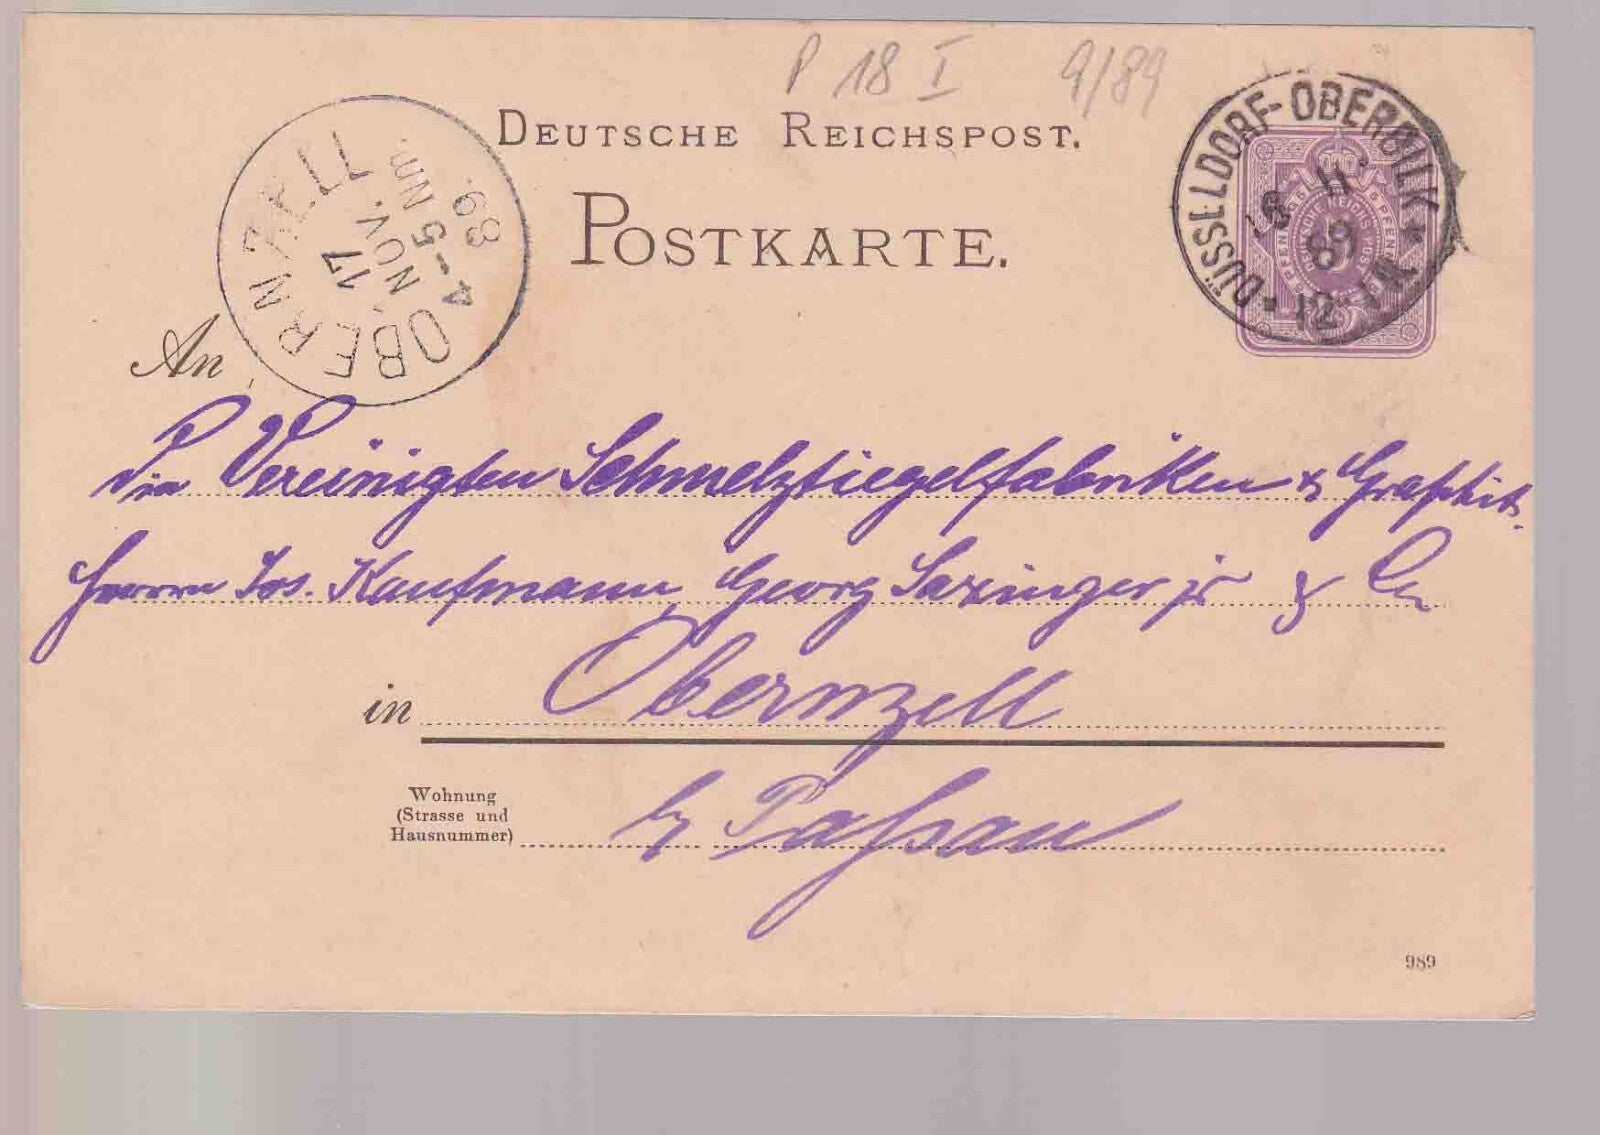 P 18 I 9/89
DEUTSCHE REICHSPOST.
POSTKARTE.
OBERNZELL
17
NOV.
4-5 Nm.
89.
DÜSSELDORF-OBERBILK
11
89
12-1N
DEUTSCHE REICHS-POST
5 PFENNIG
An
Die Vereinigten Schmelztiegelfabriken & Graphit-
Herren Jos. Kaufmann, Georg Saxinger jr & Co
in Obernzell
Wohnung
(Strasse und
Hausnummer)
by Passau
989